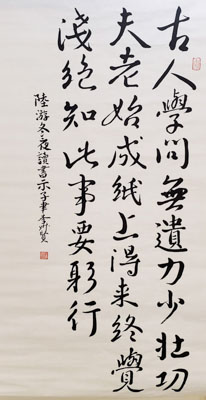 古人學問無遺力少壯功
夫老始成紙上得来終覺
淺絕知此事要躬行
陸游冬夜讀書示子聿